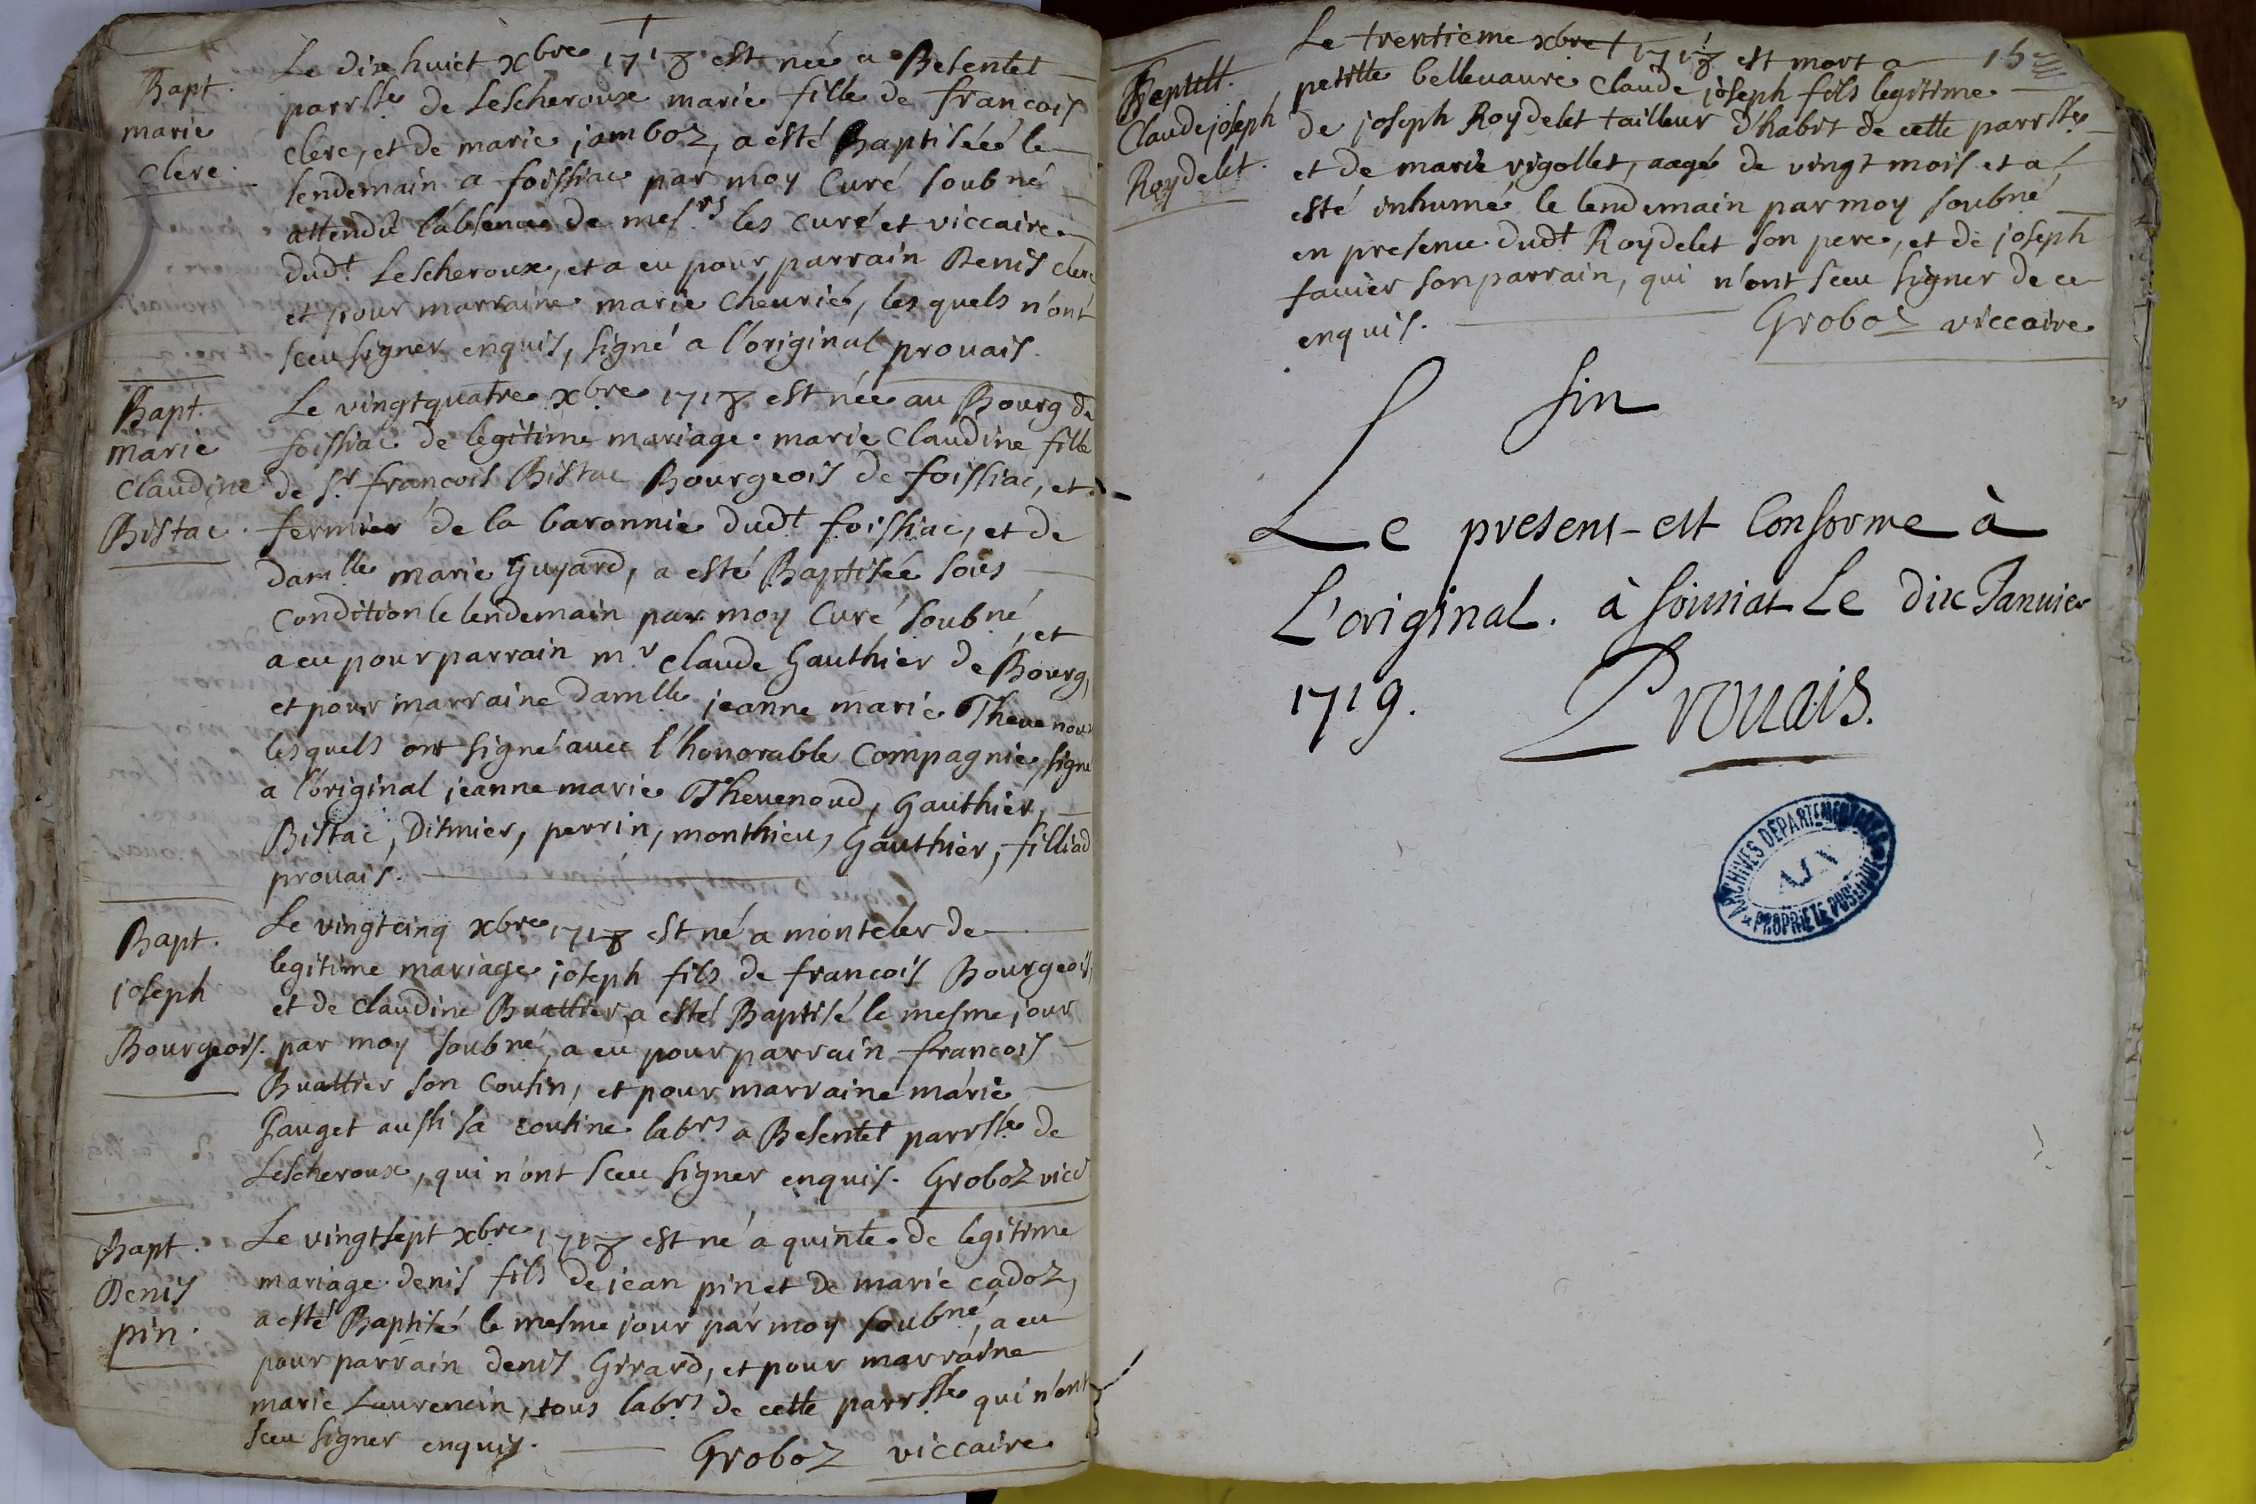 Bapt.
marie
Clerc.
Le dix huict xbre 1718 est née a Besentet
parrsse de Lescheroux marie fille de francois
clerc, et de marie jamboz, a esté Baptisée le
lendemain a foissiac par moy Curé soubné
attendu l'absence de mesrs les curé et viccaire
dudt Lescheroux, et a eu pour parrain Denis clerc
et pour marraine marie Cheurié, lesquels n'ont
sceu signer enquis, signé a l'original prouais.
Bapt.
marie
Claudine
Bistac.
Le vingtquatre xbre 1718 est née au Bourg de
foissiac de legitime mariage marie Claudine fille
de Sr francois Bistac Bourgeois de foissiac, et
fermier de la baronnie dudt foissiac, et de
damlle marie Guyard, a esté Baptisée sous
condition le lendemain par moy Curé soubné, et
a eu pour parrain mr Claude Gauthier de Bourg,
et pour marraine damlle jeanne marie Thevenoud
lesquels ont signé avec l'honorable Compagnie, signé
a l'original jeanne marie Thevenoud, Gauthier,
Bistac, Ditmier, perrin, monthieu, Gauthier, filliad
prouais.
Bapt.
joseph
Bourgeois.
Le vingtcinq xbre 1718 est né a montcler de
legitime mariage joseph fils de francois Bourgeois,
et de Claudine Buattier, a esté Baptisé le mesme jour
par moy soubné, a eu pour parrain francois
Buattier son Cousin, et pour marraine marie
Pauget aussi sa cousine labrs a Besentet parrsse de
Lescheroux, qui n'ont sceu signer enquis. Groboz vicc
Bapt.
Denis
pin.
Le vingtsept xbre 1718 est né a quinte de legitime
mariage denis fils de jean pin et de marie cadoz,
a esté Baptisé le mesme jour par moy soubné, a eu
pour parrain denis Girard, et pour marraine
marie Laurencin, tous labrs de cette parrsse qui n'ont
sceu signer enquis. Groboz viccaire
15
Sepult.
Claude joseph
Roydelet.
Le trentieme xbre 1718 est mort a
petitte bellevavre Claude joseph fils legitime
de joseph Roydelet tailleur d'habit de cette parrsse
et de marie vigollet, aagé de vingt mois et a
esté inhumé le lendemain par moy soubné
en presence dudt Roydelet son pere, et de joseph
favier son parrain, qui n'ont sceu signer de ce
enquis. Groboz viccaire
fin
Le present est Conforme à
L'original. à foissiat Le dix Janvier
1719. Prouais.
ARCHIVES DÉPARTEMENTALES
AIN
PROPRIÉTÉ PUBLIQUE